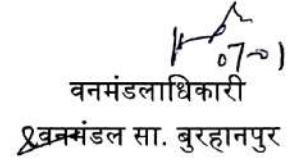 07-01
वनमंडलाधिकारी
वनमंडल सा. बुरहानपुर